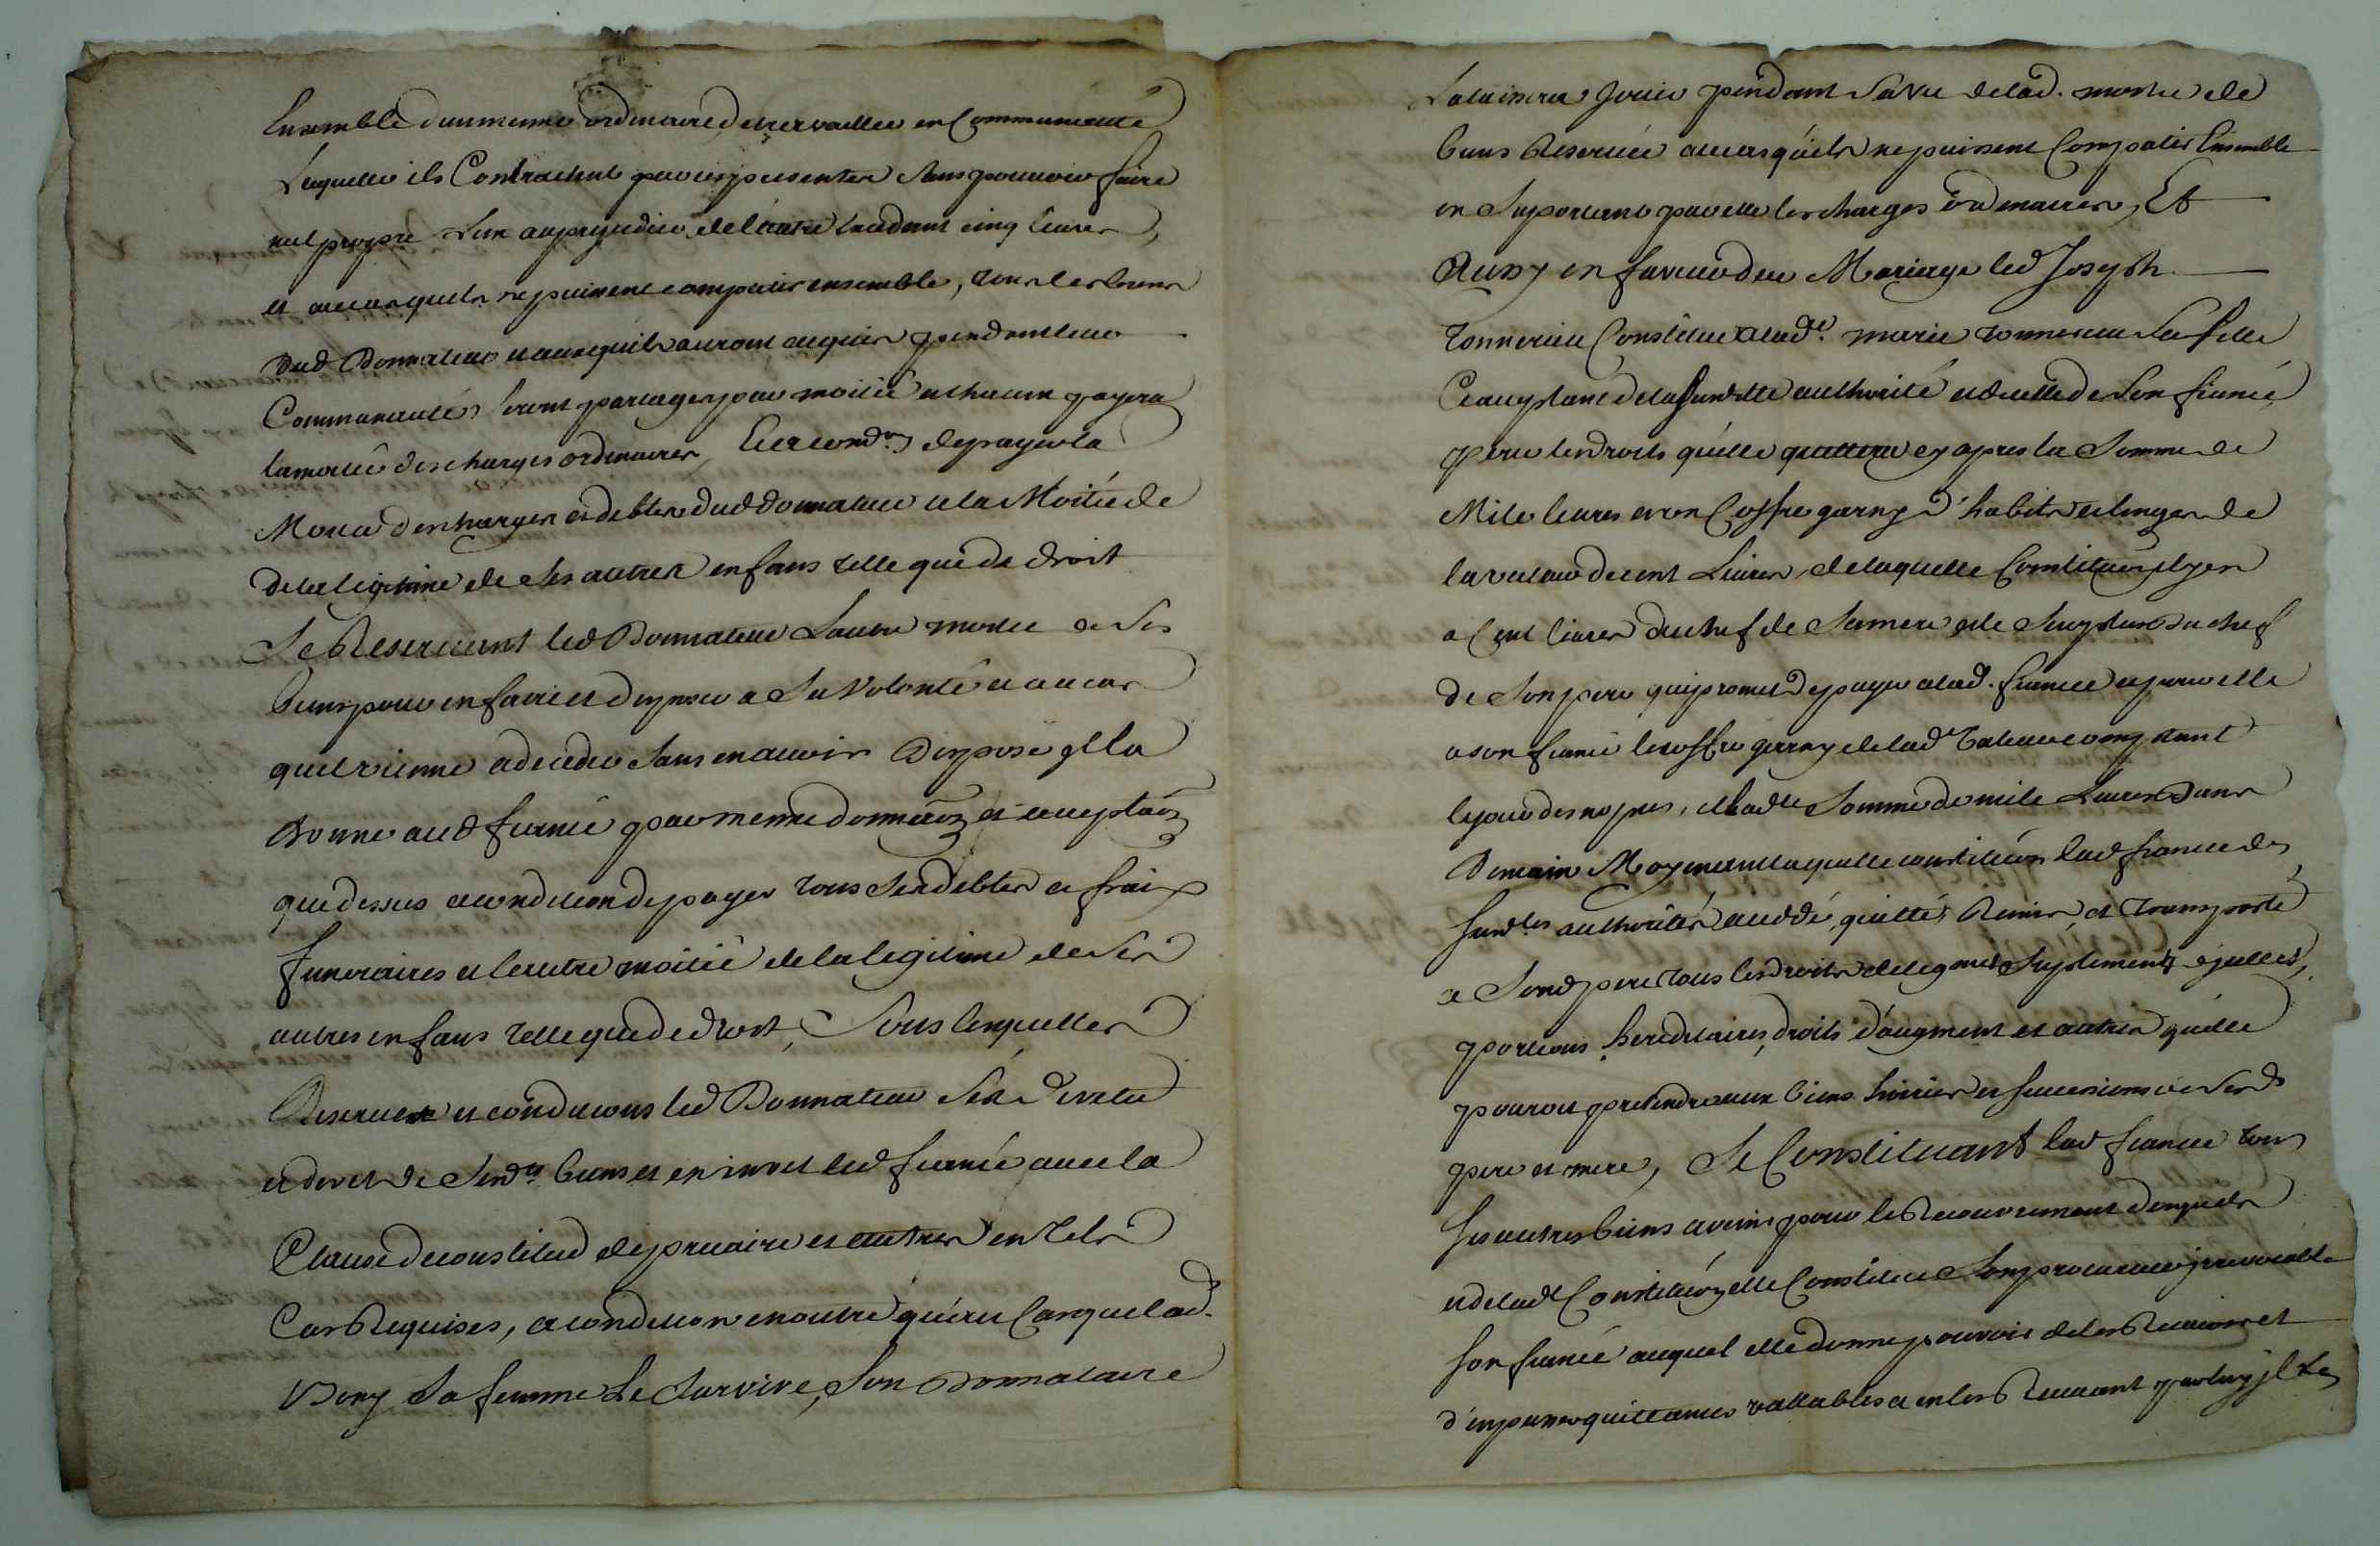 Ensemble d'un mesme ordinaire et travailler en Communauté
Laquelle ils Contractent par ces presentes sans pouvoir faire
nul propre l'un au prejudice de l'autre excedant cinq livres,
et au cas quils ne puissent compatir ensemble, tous les biens
dud Donnateur et ceux quils auront acquis pendant leur
Communauté, seront partagés par moitié et chacun payera
la moitié des charges ordinaires, Et a condon de payer la
Moitié des charges et debtes dud donnateur et la Moitié de
de la legitime de ses autres enfans telle que de droit
Se Reservant led Donnateur Lautre moitié de ses
biens pour en faire et disposer a Sa Volonté et au cas
quil vienne a deceder sans en avoir Disposé il la
Donne aud fiancé par meme donnaon et acceptaon
que dessus a condition de payer tous ses debtes et fraix
funeraires et lautre moitié de la legitime de ses
autres enfans telle que de droit, Sous lesquelles
Reserves et conditions led Donnateur s'est devetu
et devet de sesds biens et en invet led fiancé avec la
Clause de constitud de precaire et autres en tels
Cas Requises, a condition en outre qu'au Cas que lad.
Bony sa femme Le Survive, Son Donnataire
La laissera Jouir pendant sa vie de lad. moitié de
biens Reservée au cas qu'ils ne puissent Compatir Ensemble
en Suportant par elle les charges ordinaires, Et
Aussy en faveur du Mariage led Joseph
Tonnerieu Constitue a lade. marie tonnerieu sa fille
Ceacceptant de la susditte authorité et de celle de son fiancé
pour les droits qu'elle quittera cy apres la Somme de
Mile livres et un Coffre garny d'habits et linges de
la valeur de cent Livres, de laquelle Constituon il y en
a Cent livres du chef de Sa mere et le Surplus du chef
de Son pere qui promet de payer a lad. fiancée et pour elle
a son fiancé le coffre garny de lad valeur comptant
le jour des nopces, et lade Somme de mile Livres dans
Demain Moyenant laquelle constituon lad fiancée des
susdes authorités a cedé, quitté, Remis, et transporté
a Sond pere tous les droits de legmes Suplement dicelles,
portions hereditaires, droits d'augment et autres qu'elle
pouroit pretendre aux biens hoiries et successions de sesds
pere et mere, Se Constituant lad fiancée tous
ses autres biens a venir pour le Recouvrement desquels
et de lade Constituon elle Constitue Son procureur irrevocable
son fiancé auquel elle donne pouvoir de les Recevoir et
d'en passer quittances vallables et en les Recevant par luy il les